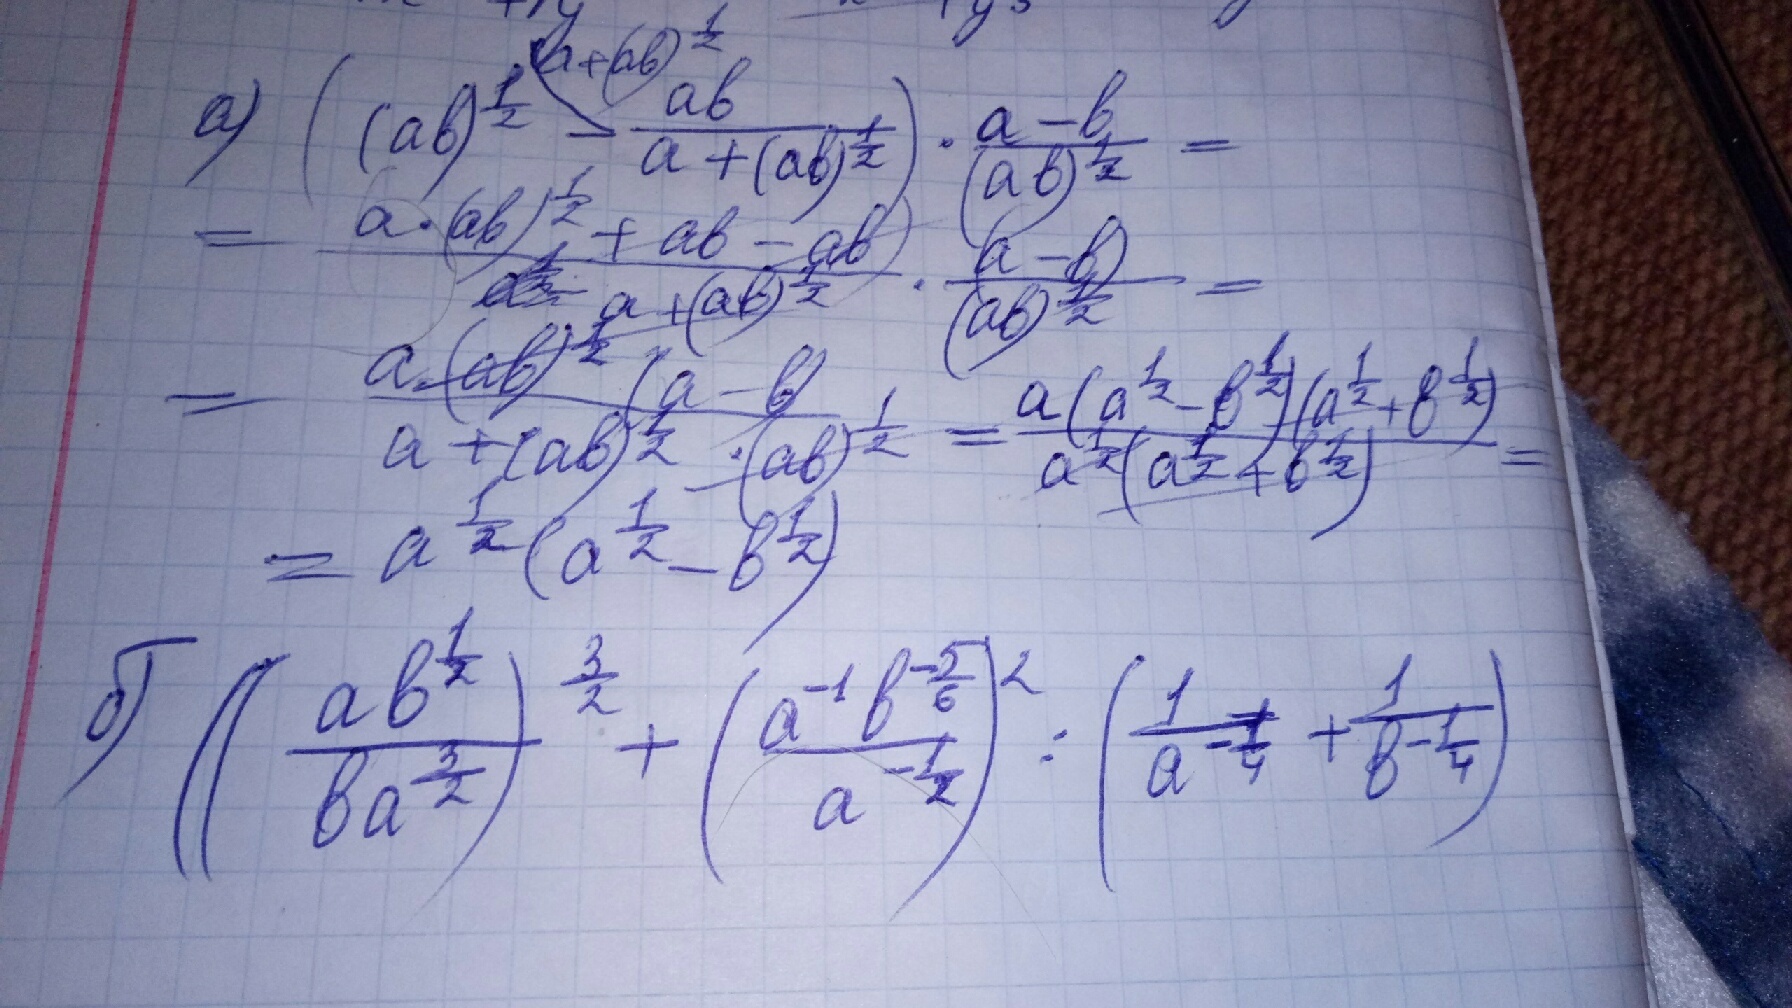 a+(ab)^{1/2}
а) ( (ab)^{1/2} - ab / (a+(ab)^{1/2}) ) · (a-b) / (ab)^{1/2} =
= (a·(ab)^{1/2} + ab - ab) / (a+(ab)^{1/2}) · (a-b) / (ab)^{1/2} =
= a·(ab)^{1/2} (a-b) / (a+(ab)^{1/2} · (ab)^{1/2}) = a(a^{1/2} - b^{1/2})(a^{1/2} + b^{1/2}) / (a^{1/2}(a^{1/2} + b^{1/2})) =
= a^{1/2}(a^{1/2} - b^{1/2})
б) ((ab^{1/2} / ba^{3/2})^{3/2} + (a^{-1}b^{-5/6} / a^{-1/2})^2 : (1/a^{-1/4} + 1/b^{-1/4})